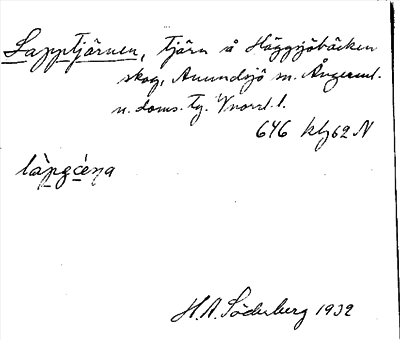 Lapptjärnen, tjärn å Häggsjöbäcken
skog, Anundsjö sn. Ångerml.
n. doms. tg. Vnorrl. l.
646 klg 62 N
làpgćɛṇa
H. A. Söderberg 1932